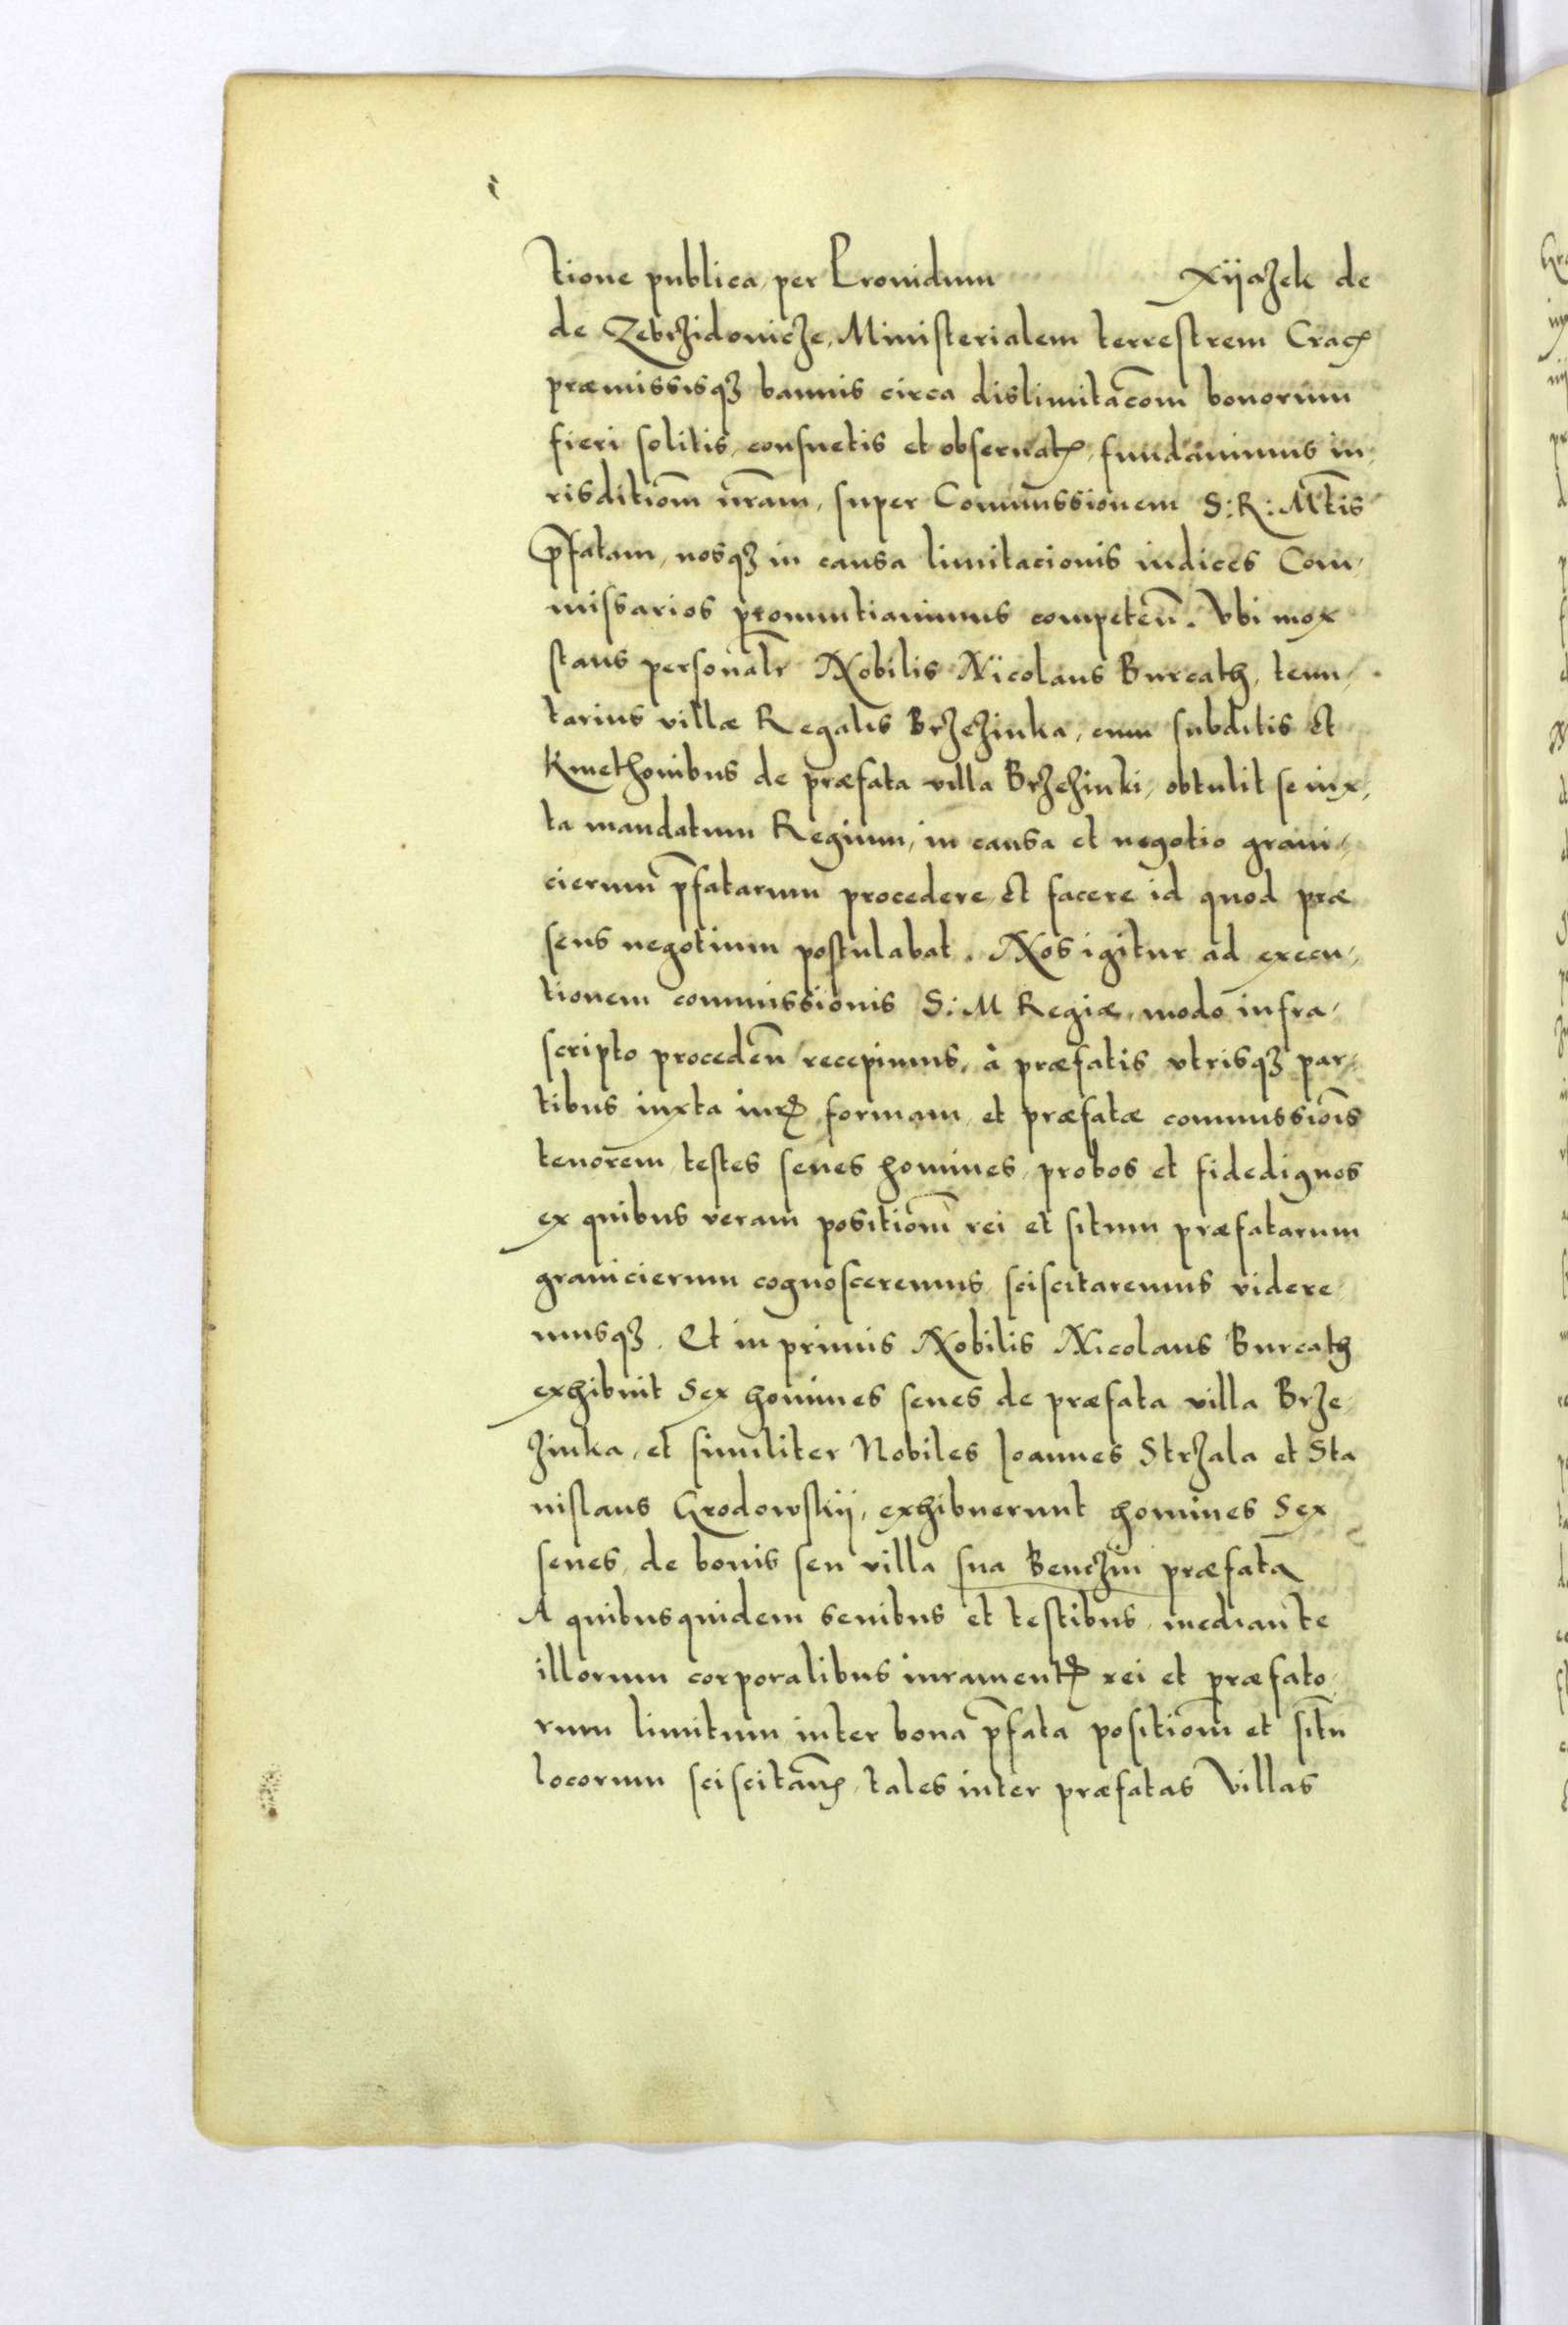 tione publica, per Prouidum Xijazek de
de Zebrzidowicze, Ministerialem terrestrem Crac̃
præmissisqʒ bannis circa dislimitac̃om bonorum
fieri solitis, consuetis et obseruatꝭ, fundauimus iu,
risditiom̃ nr̃am, super Commissionem S: R: Mt̃is
p̃fatam, nosqʒ in causa limitacionis iudices Com,
missarios pronuntiauimus competeñ. Vbi mox
stans personalr̃ Nobilis Nicolaus Burcath, tenu,
tarius villæ Regalis Brzezinka, cum subditis et
Kmethonibus de præfata villa Brzezinki, obtulit se iux,
ta mandatum Regium, in causa et negotio grani,
cierum p̃fatarum procedere et facere id quod præ
sens negotium postulabat. Nos igitur ad execu,
tionem commissionis S: M Regiæ, modo infra,
scripto procedeñ recepimus, à præfatis vtrisqʒ par,
tibus iuxta iurꝭ formam et præfatæ commissiõis
tenorem, testes senes homines, probos et fidedignos
ex quibus veram positiom̃ rei et situm præfatarum
granicierum cognosceremus sciscitaremus videre
musqʒ. Et in primis Nobilis Nicolaus Burcath
exhibuit Sex homines senes de præfata villa Brze,
zinka, et similiter Nobiles Ioannes Strzala et Sta
nislaus Grodowskij, exhibuerunt homines Sex
senes, de bonis seu villa sua Benczin præfata
A quibusquidem senibus et testibus, mediante
illorum corporalibus iuramentꝭ rei et præfato,
rum limitum inter bona p̃fata positiom̃ et sitũ
locorum sciscitañꝭ, tales inter præfatas Villas